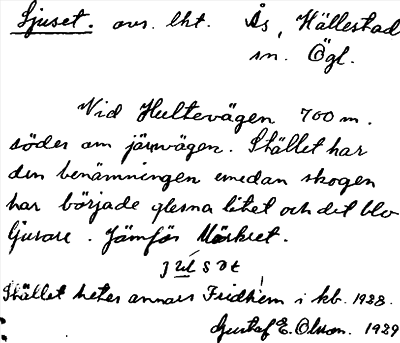 Ljuset. avs. lht. Ås, Hällestad
sn. Ögl.
Vid Hultevägen 700 m.
söder om järnvägen. Stället har
den benämningen emedan skogen
har började glesna litet och det blev
ljusare. Jämför Mörkret.
Stället heter annars Fridhem i kb. 1928.
Gustaf E. Olsson. 1929